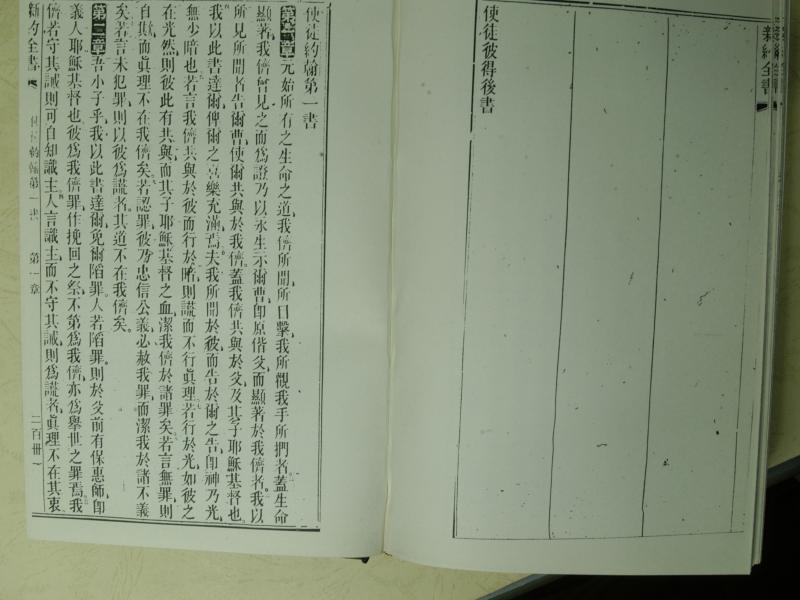 新約全書
使徒彼得後書
使徒約翰第一書
第一章元始所有之生命之道我儕所聞所目擊我所觀我手所捫者蓋生命
顯著我儕曾見之而爲證乃以永生示爾曹卽原偕父而顯著於我儕者我以
所見所聞者告爾曹使爾共與於我儕蓋我儕共與於父及其子耶穌基督也
我以此書達爾俾爾之喜樂充滿焉夫我所聞於彼而告於爾之告卽神乃光
無少暗也若言我儕共與於彼而行於暗則謊而不行眞理若行於光如彼之
在光然則彼此有共與而其子耶穌基督之血潔我儕於諸罪矣若言無罪則
自欺而眞理不在我儕矣若認罪彼乃忠信公義必赦我罪而潔我於諸不義
矣若言未犯罪則以彼爲謊者其道不在我儕矣
第二章吾小子乎我以此書達爾免爾陷罪人若陷罪則於父前有保惠師卽
義人耶穌基督也彼爲我儕罪作挽回之祭不第爲我儕亦爲舉世之罪焉我
儕若守其誡則可自知識主人言識主而不守其誡則爲謊者眞理不在其衷
新約全書 使徒約翰第一書 第一章 二百卌一